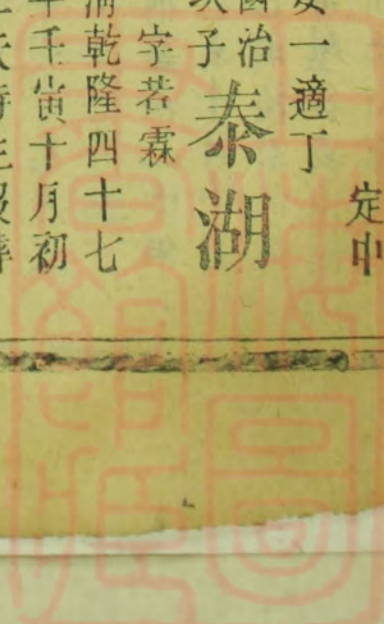 定中
女一適丁
國治
次子
泰湖
字若霖
清乾隆四十七
年壬寅十月初